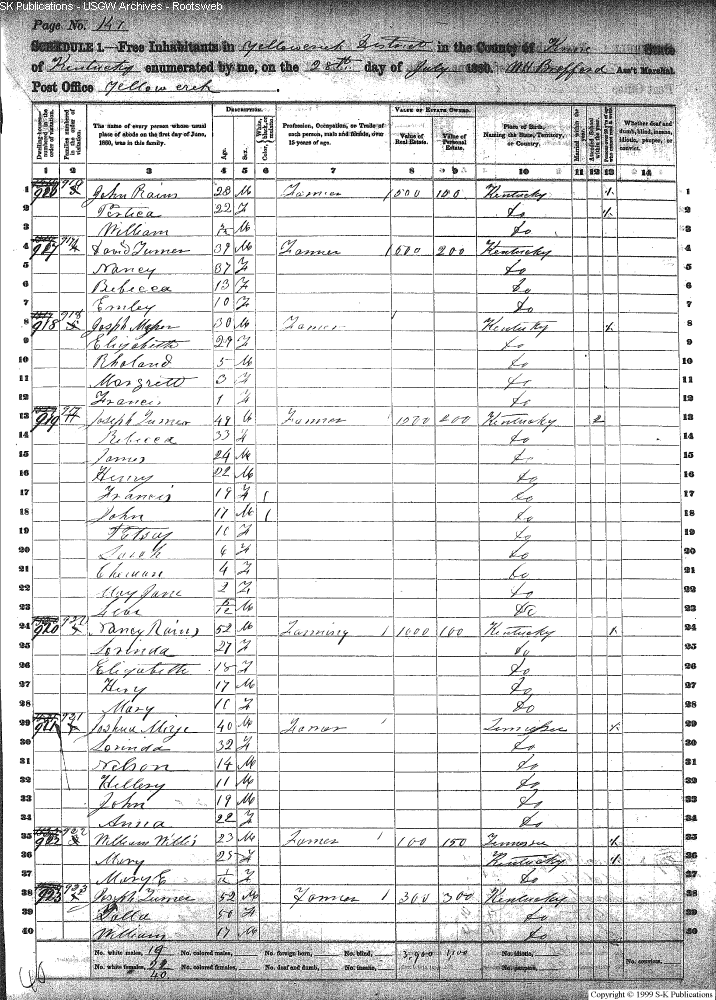 SK Publications - USGW Archives - Rootsweb
Page No. 147
SCHEDULE 1.—Free Inhabitants in Yellowcreek District in the County of Knox State
of Kentucky enumerated by me, on the 28th day of July 1860. Ass't Marshal.
Post Office Yellow creek
DESCRIPTION. VALUE OF ESTATE OWNED.
Dwelling-houses—numbered in the order of visitation. Families numbered in the order of visitation. The name of every person whose usual place of abode on the first day of June, 1860, was in this family. Age. Sex. Color, Profession, Occupation, or Trade of each person, male and female, over 15 years of age. Value of Real Estate. Value of Personal Estate. Place of Birth, Naming the State, Territory, or Country. Married within the year. Attended School within the year. Whether deaf and dumb, blind, insane, idiotic, pauper, or convict.
1 2 3 4 5 6 7 8 9 10 11 12 13 14
1 John Rains 28 M Farmer 1500 100 Kentucky 1
2 22 F do 2
3 William M do 3
4 917 David Turner 39 M Farmer 1500 200 Kentucky 4
5 Nancy 37 F do 5
6 Rebecca 13 F do 6
7 Emley 10 F do 7
8 918 918 Joseph 30 M Farmer Kentucky 8
9 Elizabeth 29 F do 9
10 Rholand 5 M do 10
11 Margrett 3 F do 11
12 Francis 1 F do 12
13 919 Joseph Turner 49 M Farmer 1000 200 Kentucky 2 13
14 Rebecca 33 F do 14
15 James 24 M do 15
16 Henry 22 M do 16
17 Francis 19 F do 17
18 John 17 M do 18
19 F do 19
20 Sarah 6 F do 20
21 4 F do 21
22 May Jane 2 F do 22
23 M do 23
24 920 Nancy Rains 52 Farming 1000 100 Kentucky 24
25 Lorinda 27 F do 25
26 Elizabeth 18 F do 26
27 17 M do 27
28 Mary F do 28
29 921 921 Joshua 40 M Farmer 29
30 Lorinda 32 F do 30
31 Nelson 14 M do 31
32 Hillery 11 M do 32
33 John 19 M do 33
34 Anna 22 F do 34
35 922 William Willis 23 M Farmer 100 150 35
36 Mary 25 F Kentucky 36
37 Mary E F do 37
38 923 923 Joseph Turner 52 M Farmer 300 300 Kentucky 38
39 50 F do 39
40 William 17 M do 40
No. white males, 19 No. colored males, No. foreign born, No. blind, No. idiotic, No. convicts,
No. white females, No. colored females, No. deaf and dumb, No. insane, No. paupers,
40
Copyright © 1999 S-K Publications